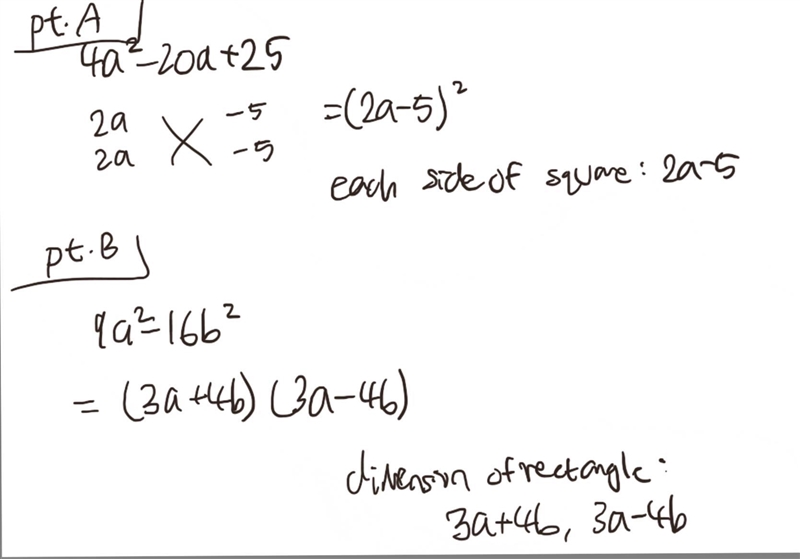 pt.A
4a²-20a+25
2a -5 =(2a-5)²
2a -5
each side of square: 2a-5
pt.B
9a²-16b²
= (3a+4b) (3a-4b)
dimension of rectangle:
3a+4b, 3a-4b